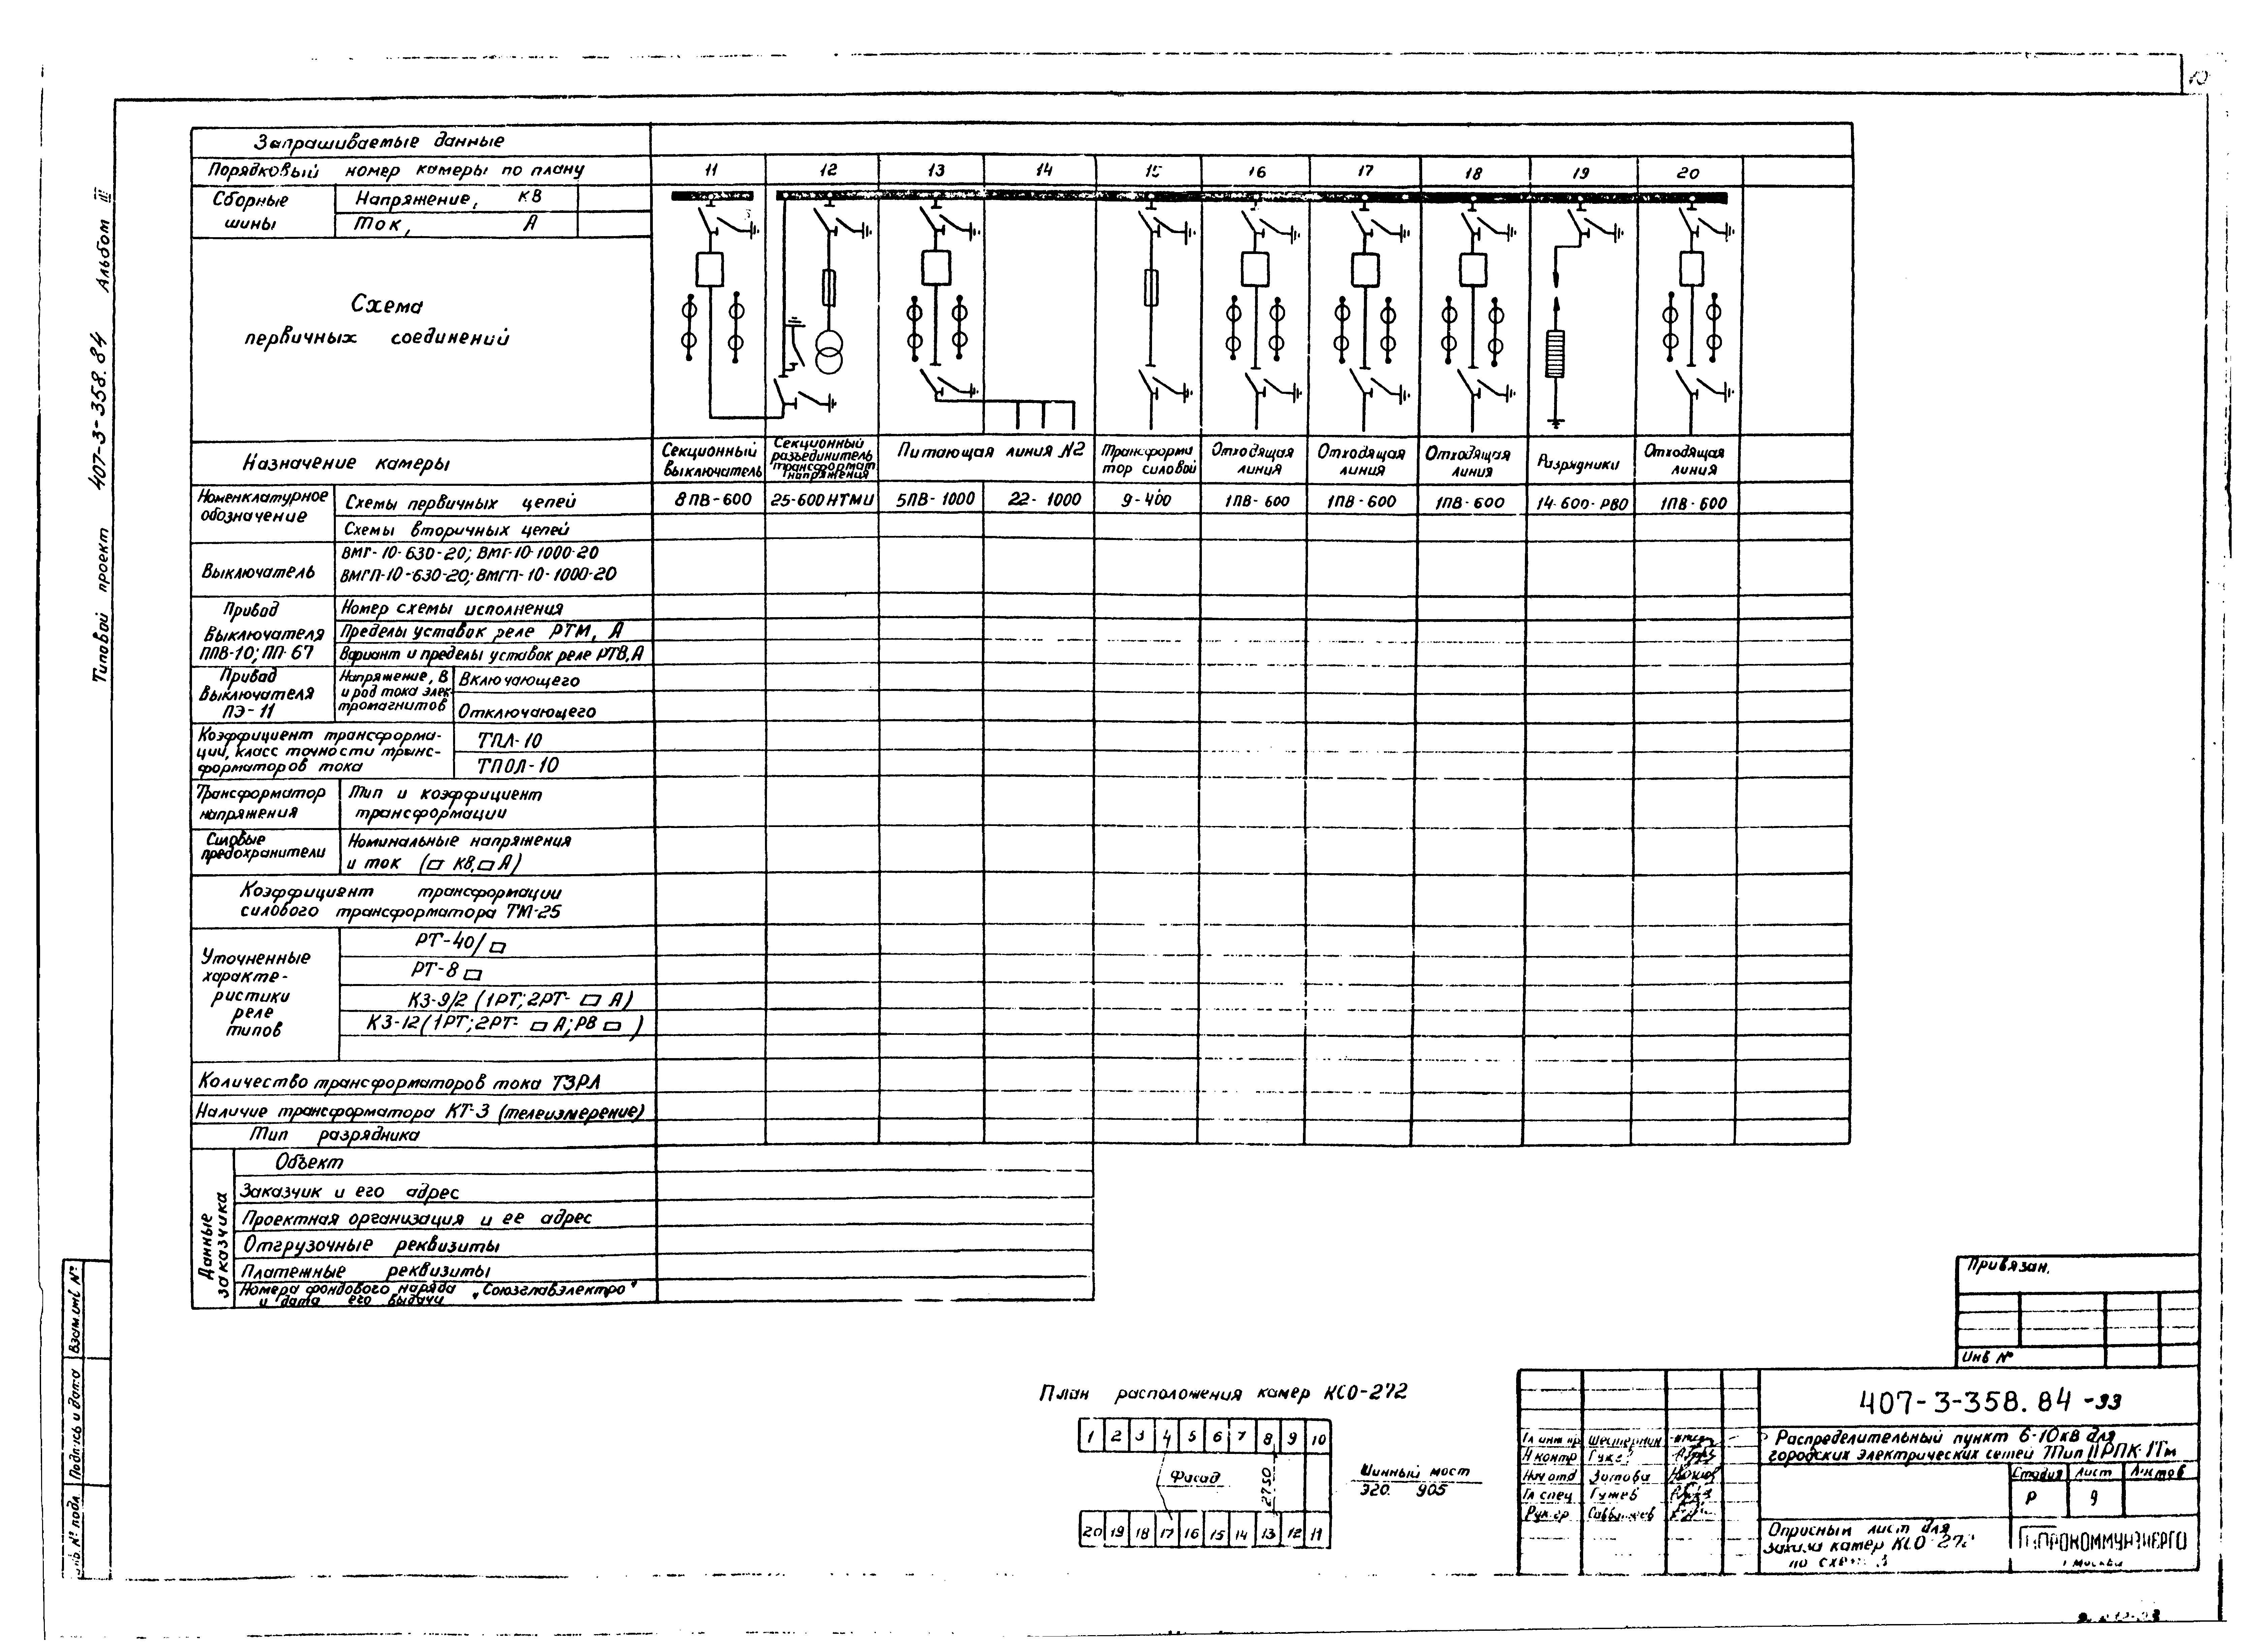 10
Типовой проект 407-3-358.84 Альбом III
Запрашиваемые данные
Порядковый номер камеры по плану
11 12 13 14 15 16 17 18 19 20
Сборные шины
Напряжение, кВ
Ток, А
Схема
первичных соединений
Назначение камеры
Секционный выключатель
Секционный разъединитель трансформат напряжения
Питающая линия №2
Трансформа тор силовой
Отходящая линия
Отходящая линия
Отходящая линия
Разрядники
Отходящая линия
Номенклатурное обозначение
Схемы первичных цепей
8ПВ-600 25-600НТМИ 5ПВ-1000 22-1000 9-400 1ПВ-600 1ПВ-600 1ПВ-600 14-600-РВО 1ПВ-600
Схемы вторичных цепей
Выключатель
ВМГ-10-630-20; ВМГ-10-1000-20
ВМГП-10-630-20; ВМГП-10-1000-20
Привод
выключателя
ППВ-10; ПП-67
Номер схемы исполнения
Пределы уставок реле РТМ, А
Вариант и пределы уставок реле РТВ, А
Привод
выключателя
ПЭ-11
Напряжение, В
и род тока элек-
тромагнитов
Включающего
Отключающего
Коэффициент трансформа-
ции, класс точности транс-
форматоров тока
ТПЛ-10
ТПОЛ-10
Трансформатор
напряжения
Тип и коэффициент
трансформации
Силовые
предохранители
Номинальные напряжения
и ток (□ кВ, □ А)
Коэффициент трансформации
силового трансформатора ТМ-25
Уточненные
характе-
ристики
реле
типов
РТ-40/□
РТ-8□
КЗ-9/2 (1РТ; 2РТ-□ А)
КЗ-12 (1РТ; 2РТ-□ А; РВ □)
Количество трансформаторов тока ТЗРЛ
Наличие трансформатора КТ-3 (телеизмерение)
Тип разрядника
Данные заказчика
Объект
Заказчик и его адрес
Проектная организация и ее адрес
Отгрузочные реквизиты
Платежные реквизиты
Номера фондового наряда „Союзглавэлектро"
и дата его выдачи
План расположения камер КСО-272
1 2 3 4 5 6 7 8 9 10
Фасад
2750
20 19 18 17 16 15 14 13 12 11
Шинный мост
320. 905
Привязан.
Инв №
407-3-358.84 -ЭЭ
Распределительный пункт 6-10кВ для
городских электрических сетей Тип II РПК-1Тм
Гл инж пр
Н контр
Нач отд Зотова
Гл спец Гужев
Рук.гр
Стадия Лист Листов
Р 9
Опросный лист для
заказа камер КСО-272
по схеме 3
ГИПРОКОММУНЭНЕРГО
г Москва
Инв. № подл. Подпись и дата Взам инв №